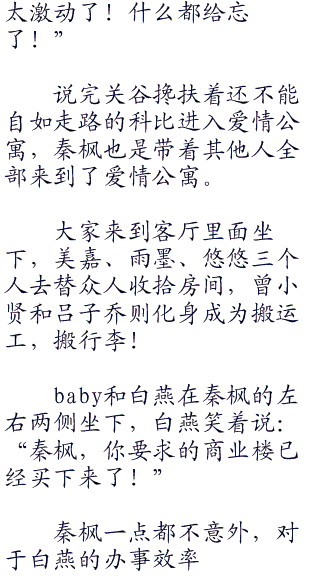 太激动了！什么都给忘
了！”
说完关谷搀扶着还不能
自如走路的科比进入爱情公
寓，秦枫也是带着其他人全
部来到了爱情公寓。
大家来到客厅里面坐
下，美嘉、雨墨、悠悠三个
人去替众人收拾房间，曾小
贤和吕子乔则化身成为搬运
工，搬行李！
baby和白燕在秦枫的左
右两侧坐下，白燕笑着说：
“秦枫，你要求的商业楼已
经买下来了！”
秦枫一点都不意外，对
于白燕的办事效率